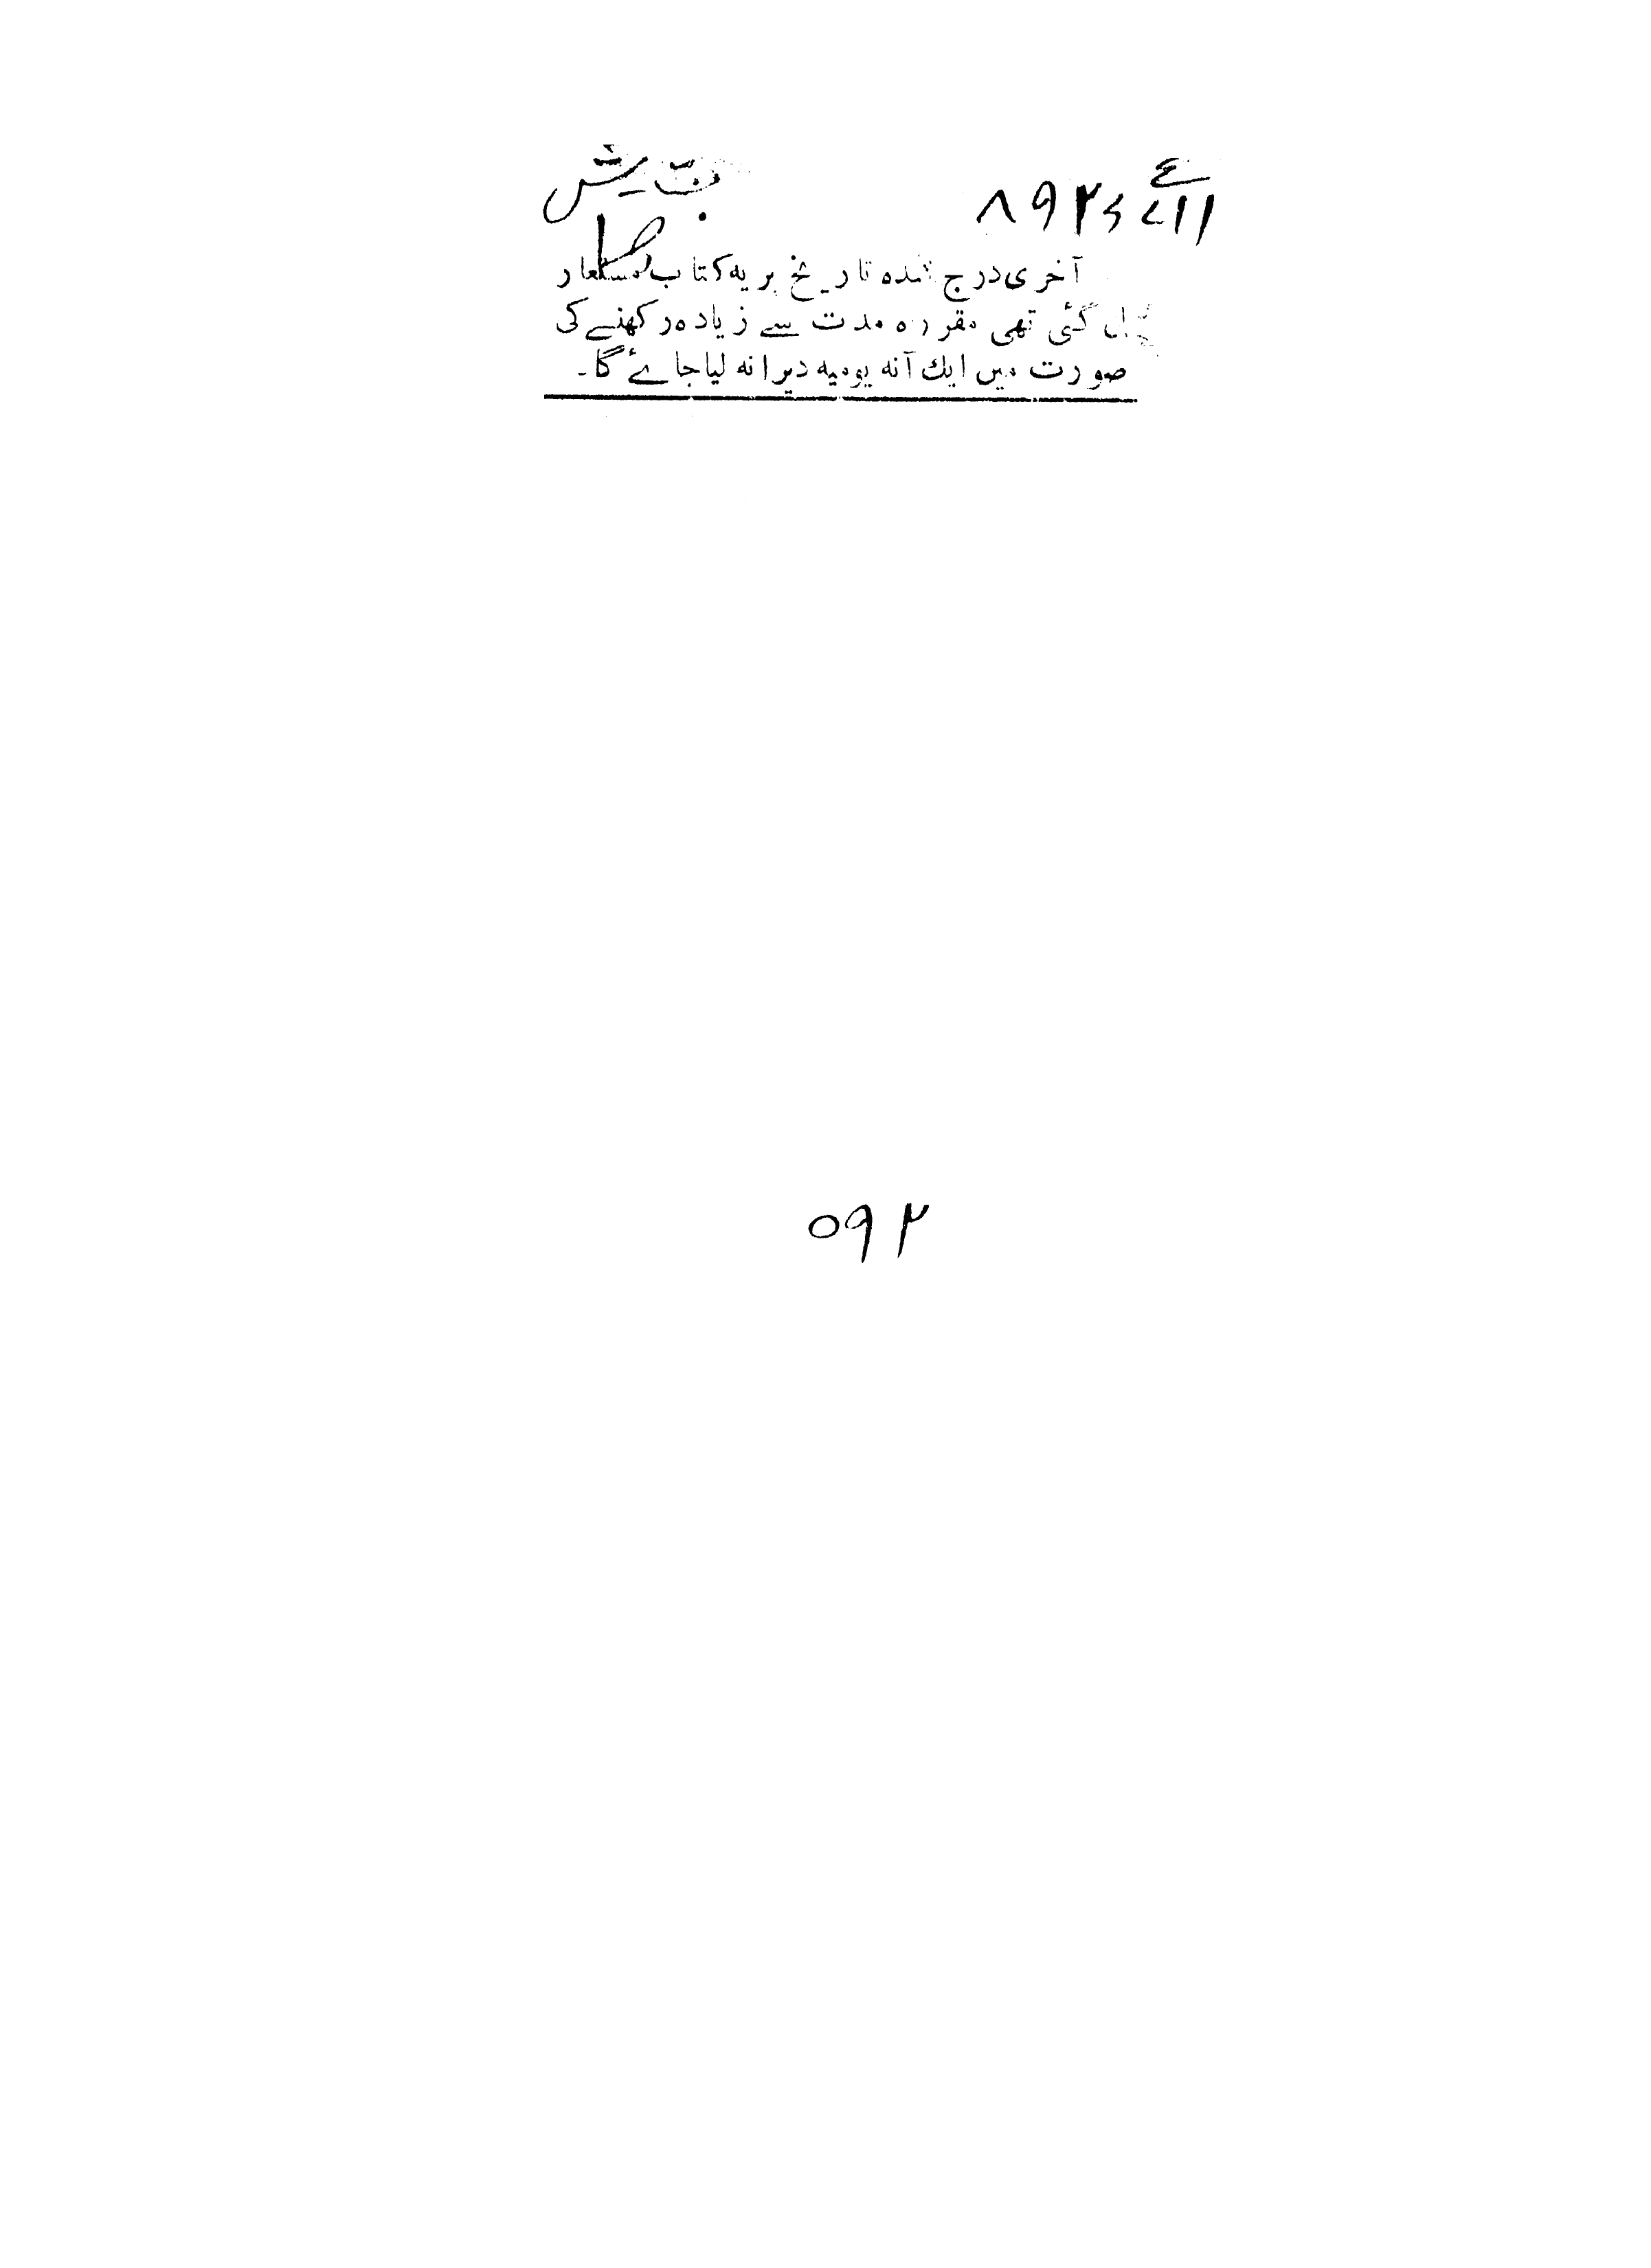 آخری درج شدہ تاریخ پر یہ کتاب مستعار
لی گئی تھی مقررہ مدت سے زیادہ رکھنے کی
صورت میں ایک آنہ یومیہ دیرانہ لیا جائے گا۔
۵۹۲